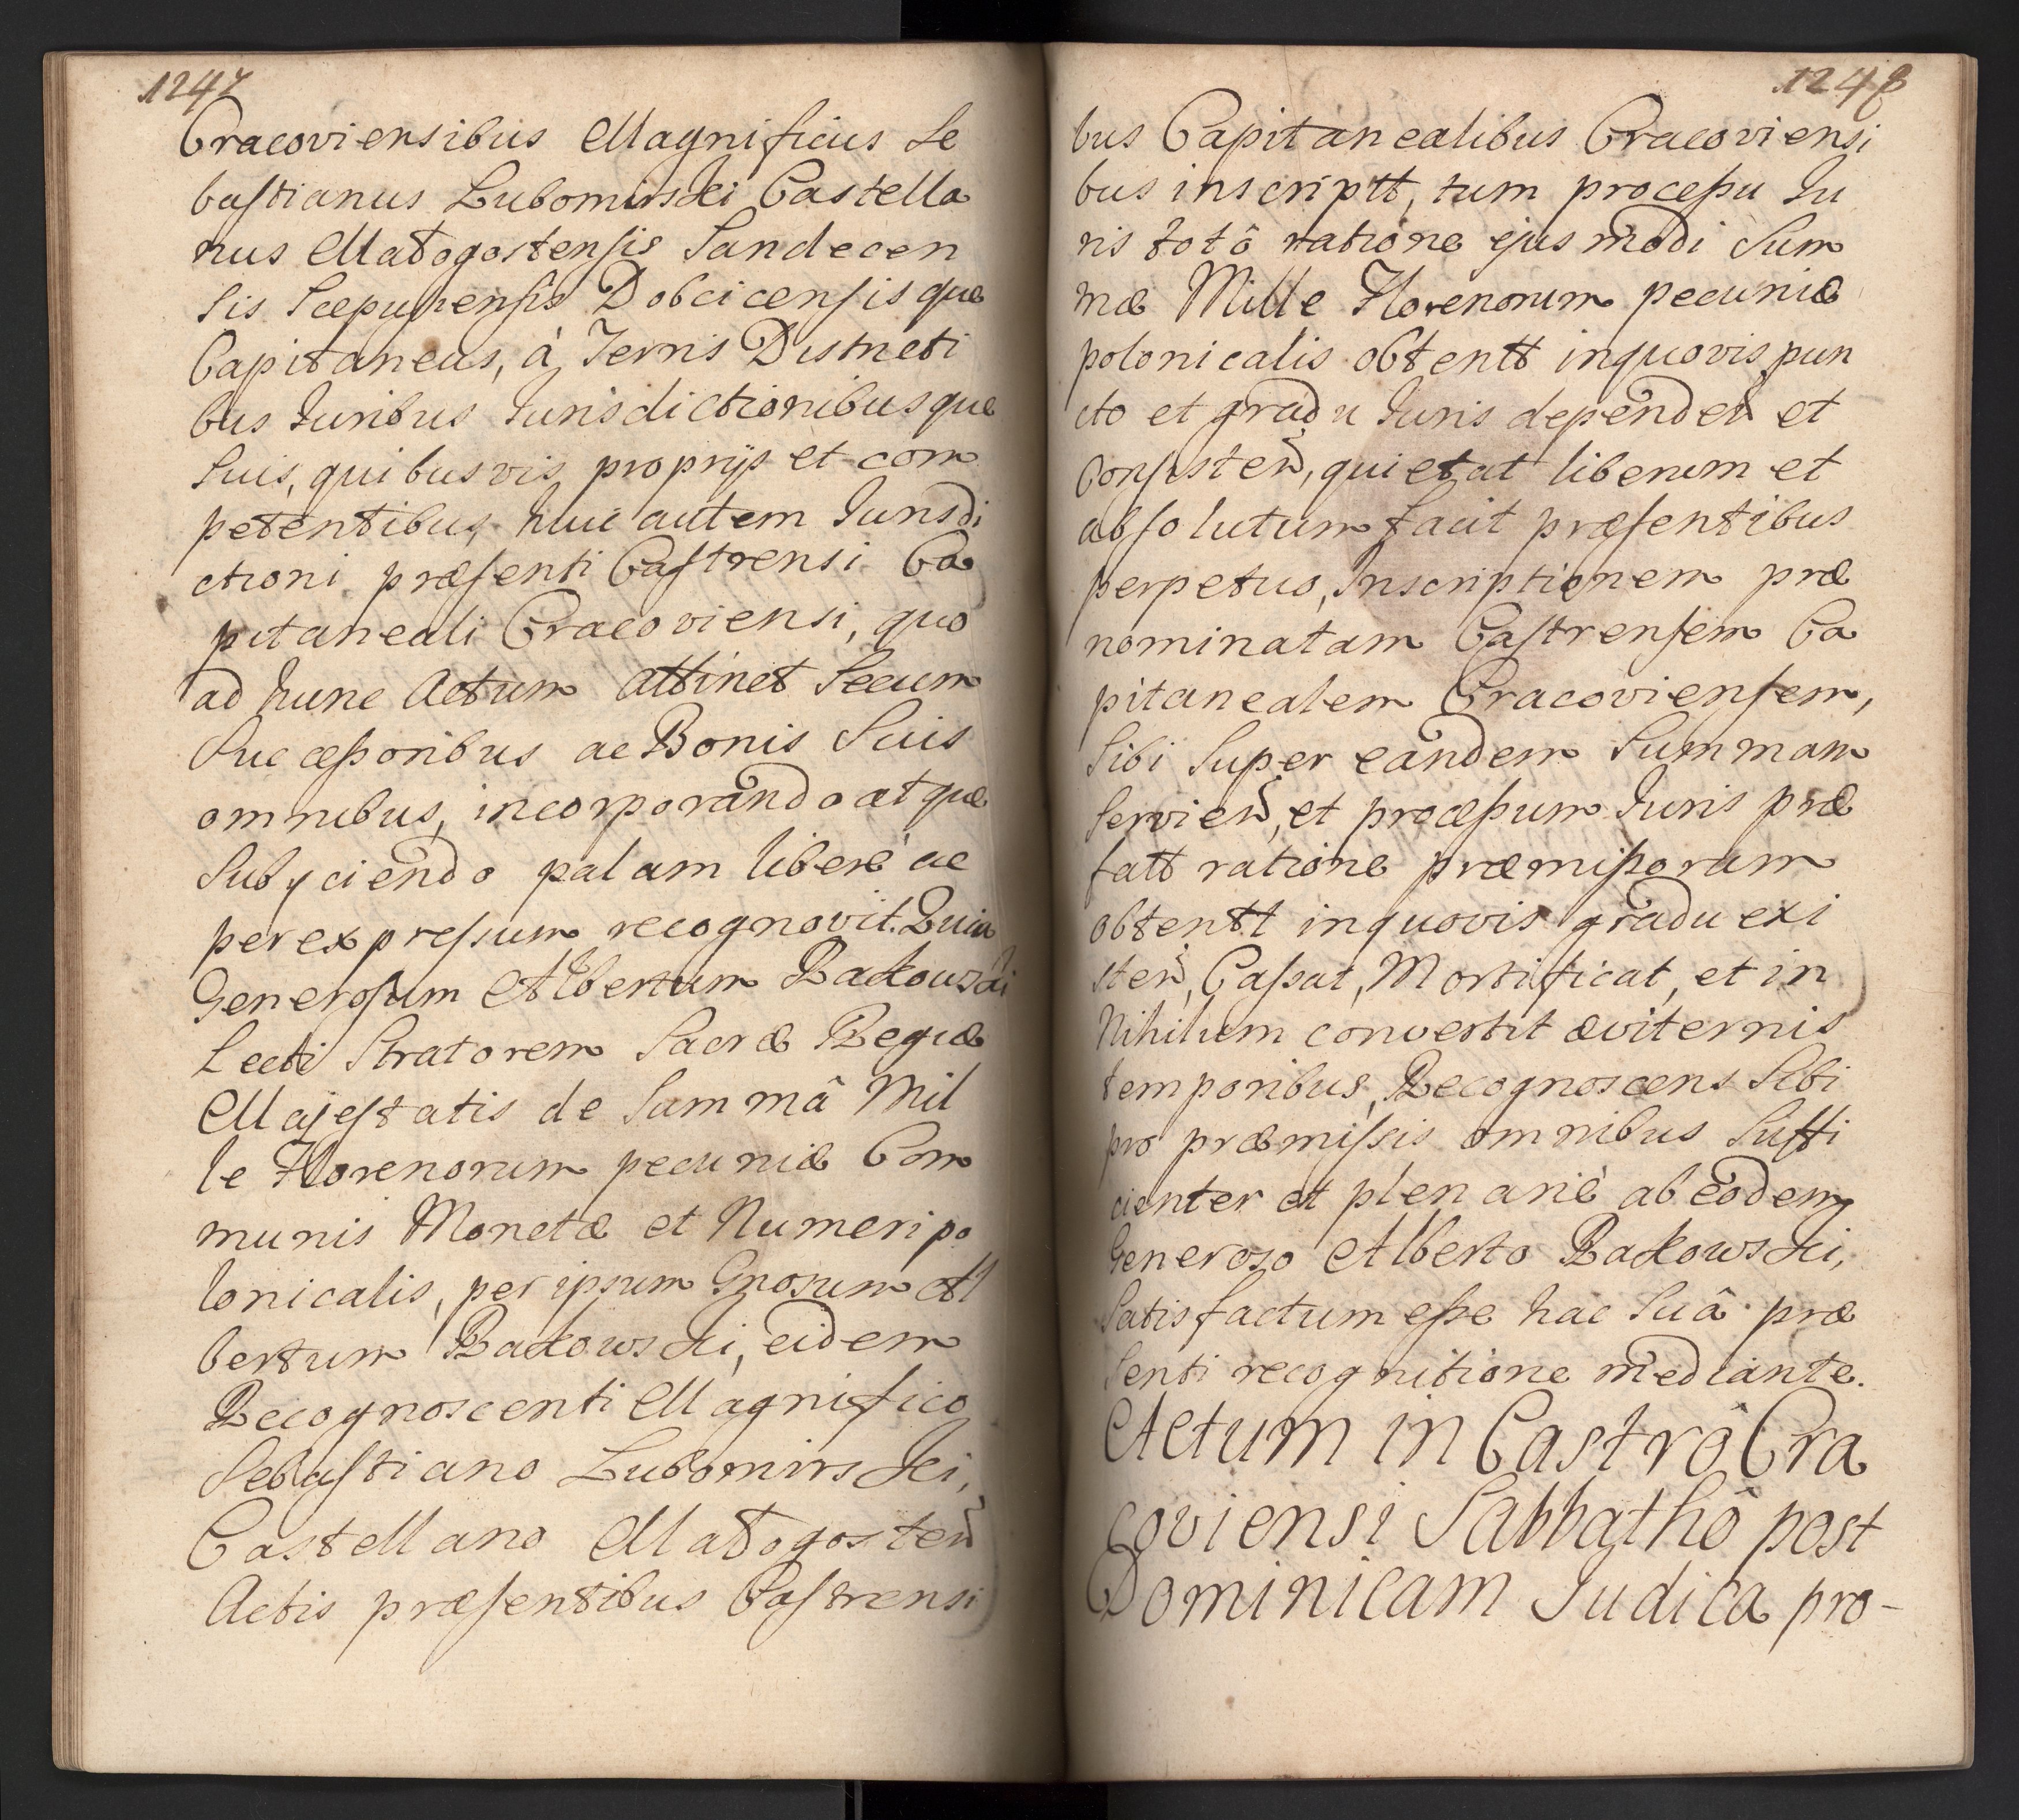 1247
Cracoviensibus Magnificus Se
bastianus Lubomirski Castella
nus Małogostensis Sandecen
sis Scepusiensis Dobcicensisque
Capitaneus, à Terris Districti
bus Iuribus Iurisdictionibusque
Suis, quibusvis proprijs et com
petentibus, huic autem Iurisdi
ctioni præsenti Castrensi Ca
pitaneali Cracoviensi, quo
ad hunc Actum attinet Secum
Successoribus ac Bonis Suis
omnibus, incorporando atque
Subyciendo palam liberè ac
per expressum recognovit. Quia
Generosum Albertum Bakowski
Lecti Stratorem Sacræ Regiæ
Majestatis de Summâ Mil
le Florenorum pecuniæ Com
munis Monetæ et Numeri po
lonicalis, per ipsum Gnosum Al
bertum Bakowski, eidem
Recognoscenti Magnifico
Sebastiano Lubomirski,
Castellano Małogosten
Actis præsentibus Castrensi
1248
bus Capitanealibus Cracoviensi
bus inscriptt, tum processu Iu
ris totô ratione ejusmodi Sum
mæ Mille Florenorum pecuniæ
polonicalis obtentt inquovis pun
cto et gradu Iuris dependen et
Consisten, quietat liberum et
absolutum facit præsentibus
perpetuo, Inscriptionem præ
nominatam Castrensem Ca
pitanealem Cracoviensem,
Sibi Super eandem Summam
Servien, et processum Iuris præ
fatt ratione præmissorum
obtentt inquovis gradu exi
sten, Cassat, Mortificat, et in
Nihilum convertit æviternis
temporibus, Recognoscens Sibi
pro præmissis omnibus Suffi
cienter et plenariè ab eodem
Generoso Alberto Bakowski,
Satisfactum esse hac Suâ præ
senti recognitione mediante.
Actum in Castrô Cra
coviensi Sabbathô post
Dominicam Iudica pro-